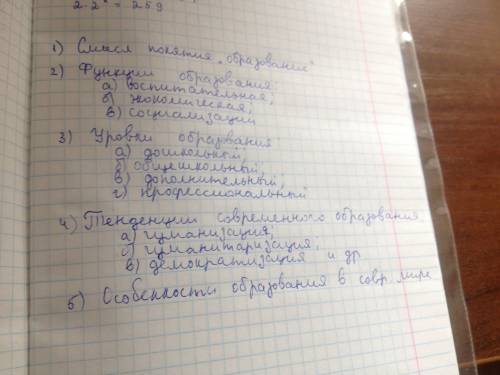 2.2 = 259
1) Смысл понятия „образование"
2) Функции образования:
а) воспитательная;
б) экономическая;
в) социализации
3) Уровни образования
а) дошкольный,
б) общешкольный,
в) дополнительный,
г) профессиональный
4) Тенденции современного образования
а) гуманизация;
б) гуманитаризация;
в) демократизация и др
5) Особенности образования в совр. мире